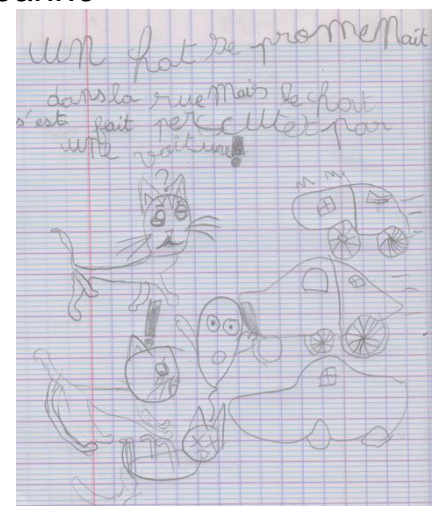 uN hat Se proMeNait
dans la rue Mais le chat
s'est fait percCUter par
une voiture!
?
!